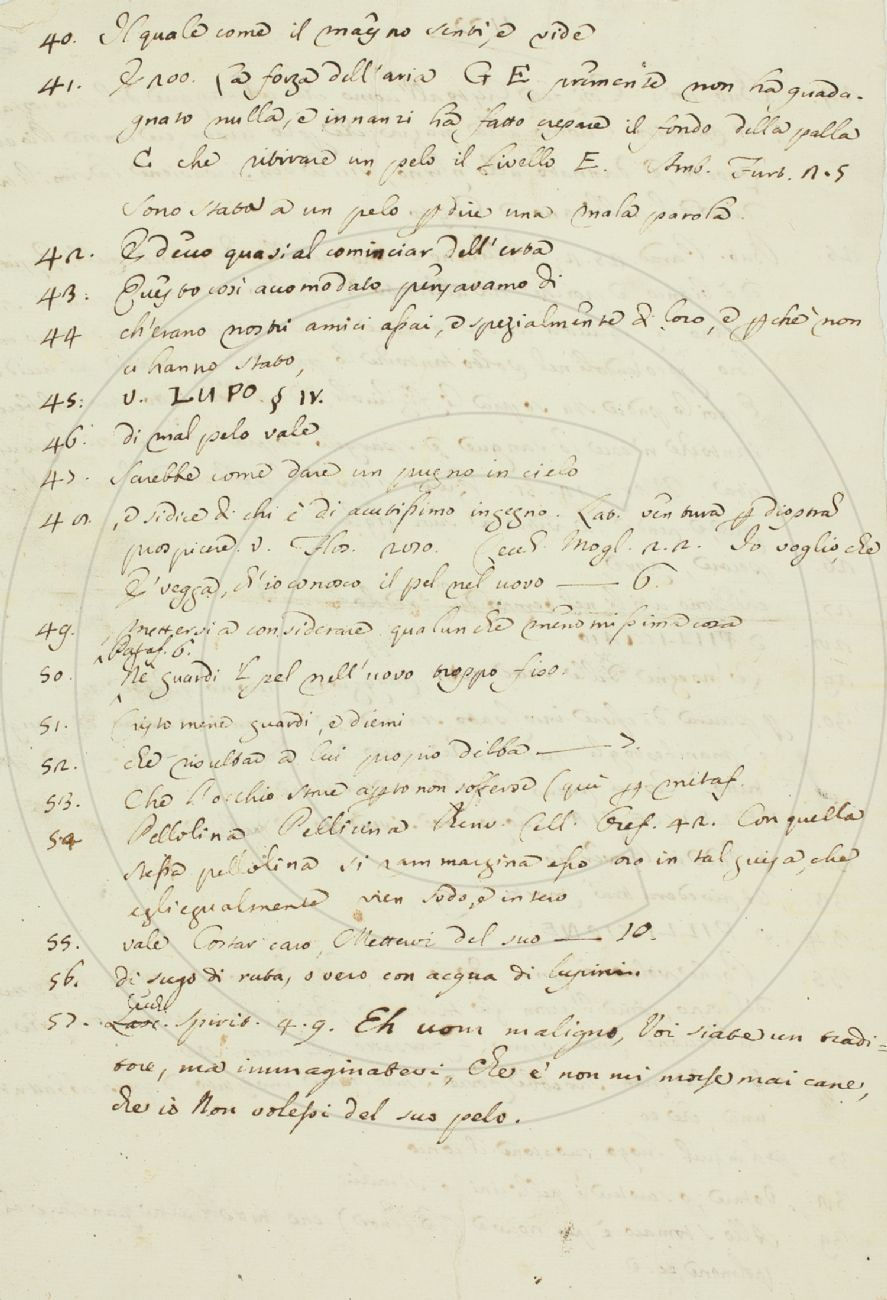 40. Il quale come il magno senti, e vide
41. E 200. La forza dell'aria G E premente non ha guada-
gnato nulla, e innanzi ha fatto crepare il fondo della palla
C che ritirare un pelo il livello E. Amb. Furt. 2.5
Sono stata a un pelo p dire una mala parola.
42. E decco quasi al cominciar dell'erta
43. Questo così accomodato pensavamo di
44 ch'erano nostri amici assai, e spezialmente di loro, e p che non
ci hanno stato,
45: v. LUPO § IV.
46. di mal pelo vale
47. Sarebbe come dare un pugno in cielo
48. , e si dice di chi è di acutissimo ingegno. Lat. ventura p dioptra
prospicere. v. Flos. 280. Cecch. Mogl. 2.2. Io voglio, che
E' vegga, ch'io conosco il pel nel uovo — 6.
49. , mettersi a considerare qualunche menomissima cosa
Pataf. 6.
50. Ne guardi il pel nell'uovo troppo fiso.
51. Cristo mene guardi, e diemi
52. che risultar a lui proprio debba — 7.
53. Che l'occhio stare aperto non sofferse (qui p metaf.
54 Pellolina Pellicina Benv. Cell. Oref. 42. Con quella
stessa pellolina si rammargina esso oro in tal guisa, che
egli egualmente vien sodo, e intero
55. vale Costar caro, Mettervi del suo — 10.
56. di sugo di ruta, o vero con acqua di lupini.
Cecch.
57. Lasc. Spirit. 4.9. Eh uom maligno, Voi siate un tradi=
tore, ma immaginattevi, Che e' non mi morse mai cane,
che io Non volessi del suo pelo.